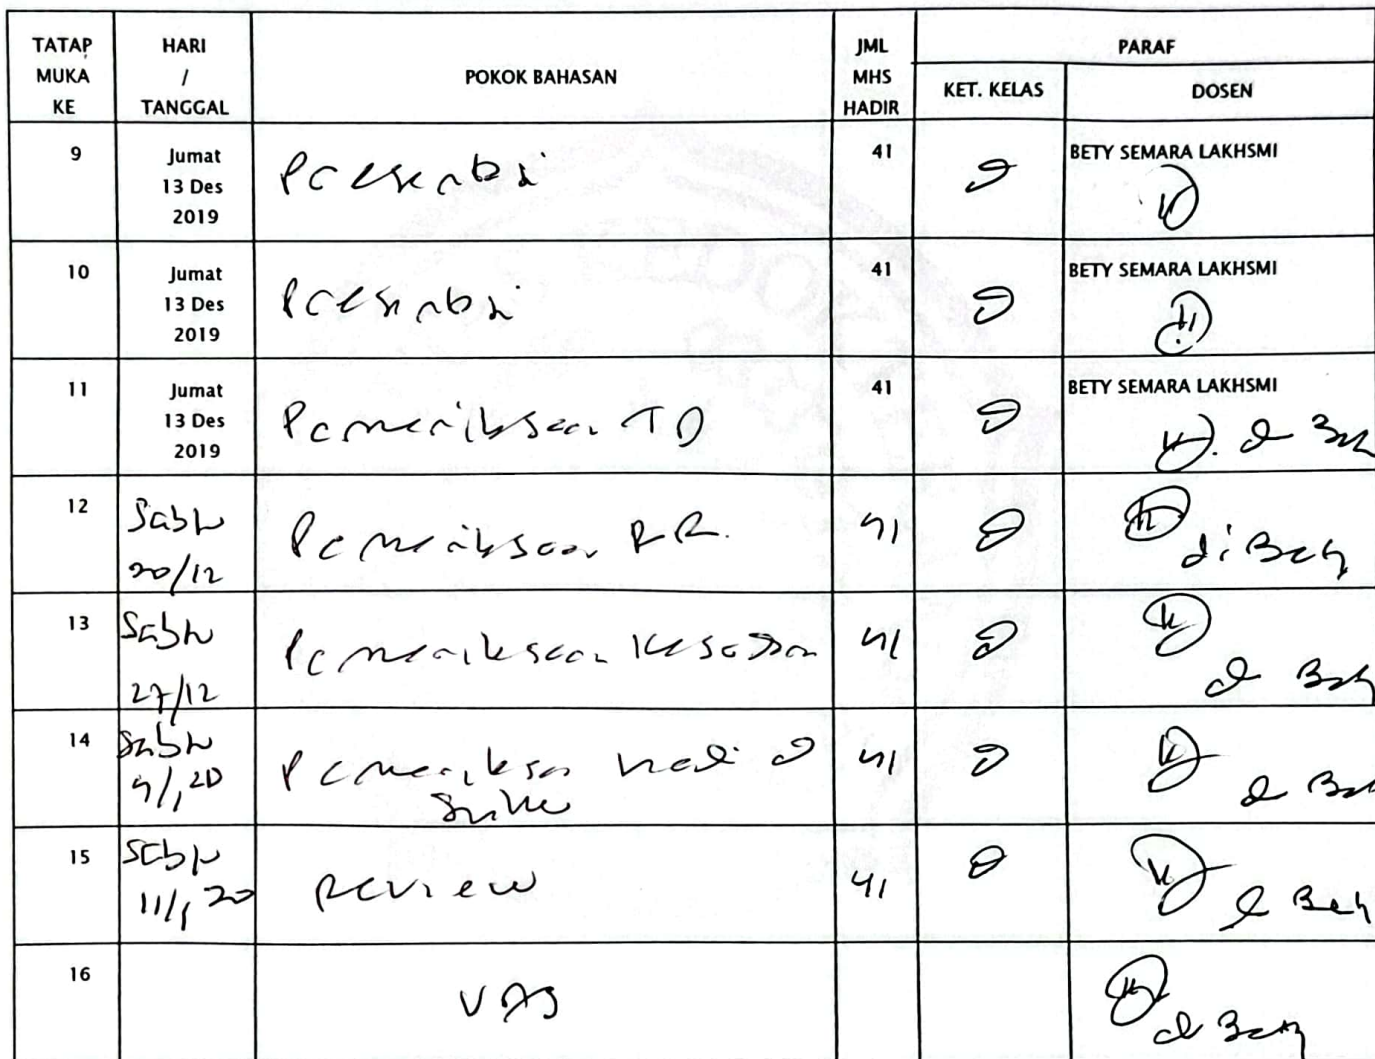 TATAP MUKA KE
HARI / TANGGAL
POKOK BAHASAN
JML MHS HADIR
PARAF
KET. KELAS
DOSEN
9
Jumat
13 Des
2019
Presentasi
41
BETY SEMARA LAKHSMI
10
Jumat
13 Des
2019
Presentasi
41
BETY SEMARA LAKHSMI
11
Jumat
13 Des
2019
Pemeriksaan TD
41
BETY SEMARA LAKHSMI
12
Sabtu
20/12
Pemeriksaan RR.
41
di Bety
13
Sabtu
27/12
Pemeriksaan Kesadaran
41
14
Sabtu
4/1 20
Pemeriksaan Nadi
Suhu
41
15
Sabtu
11/1 20
Review
41
16
UAS